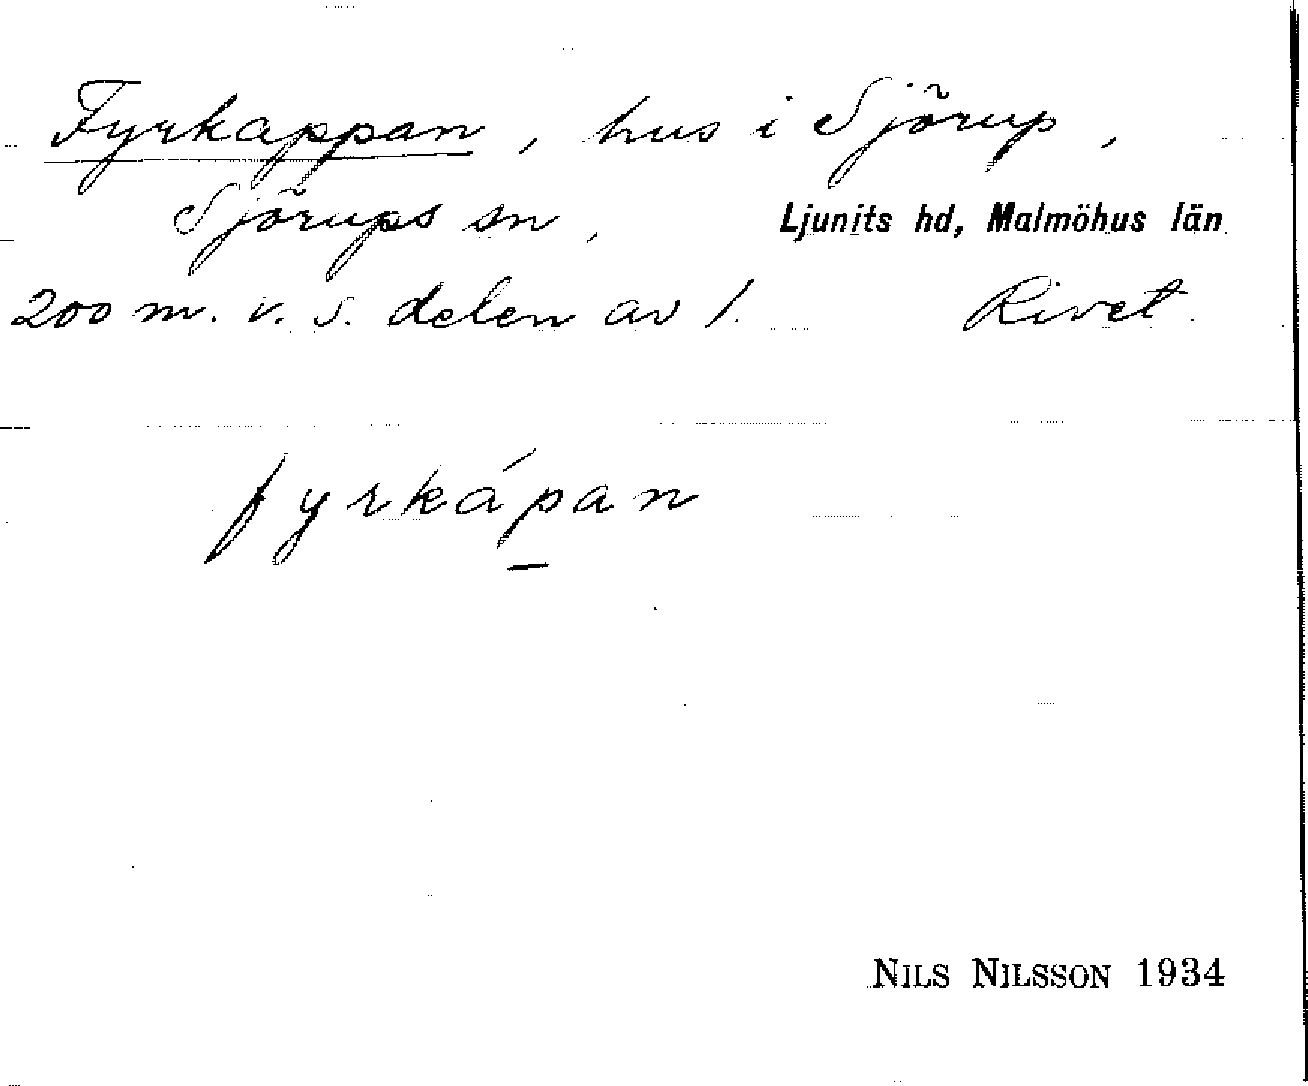 Fyrkappan, hus i Sjörup,
Sjörups sn, Ljunits hd, Malmöhus län
200 m. v. s. delen av 1. Rivet.
fyrkápan
NILS NILSSON 1934